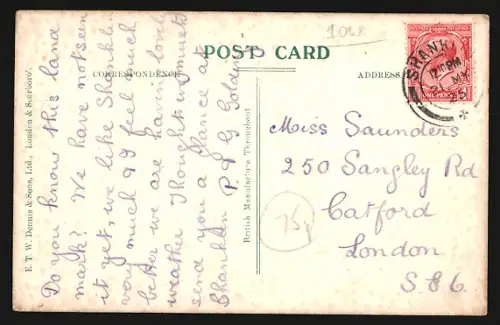 1048
POST CARD
CORRESPONDENCE
ADDRESS
SHANKLIN
12 PM
MY
ONE PENNY
Miss Saunders
250 Sangley Rd
Catford
London
S E 6.
75p
Do you know this land
mark? We have not seen
it yet, we like Shanklin
very much & I feel much
better we are having lovely
weather Thought we must
send you a glance at
Shanklin P. & G Golding
E. T. W. Dennis & Sons, Ltd., London & Scarboro'.
British Manufacture Throughout